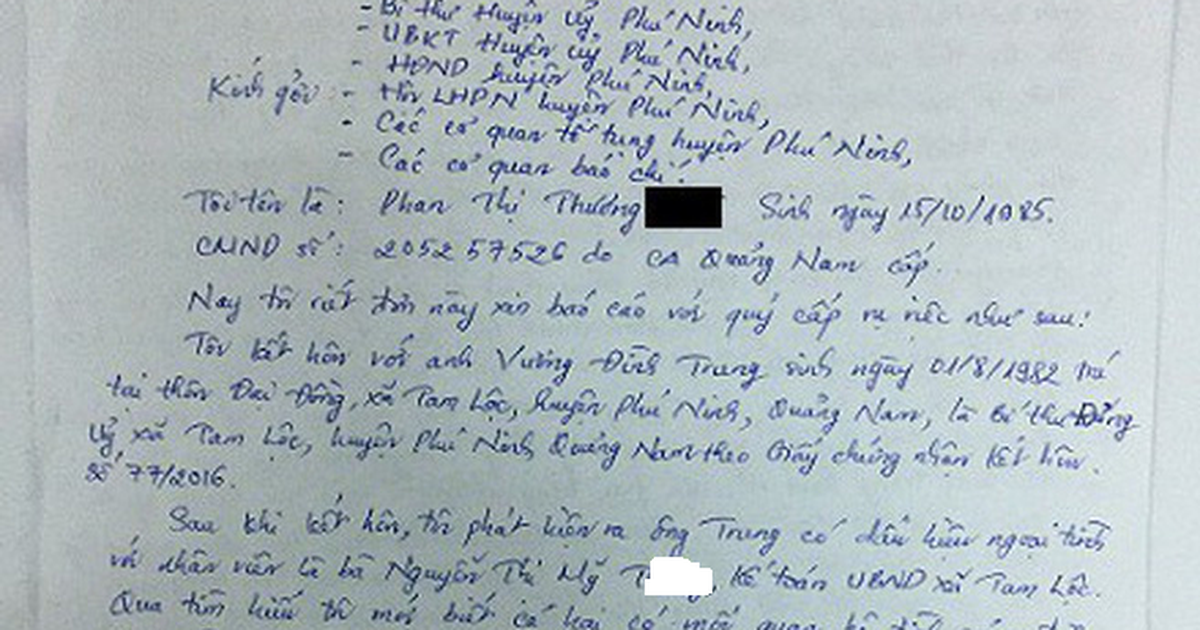 - Bí thư Huyện uỷ Phú Ninh,
- UBKT Huyện uỷ Phú Ninh,
- HĐND huyện Phú Ninh,
Kính gởi: - Hội LHPN huyện Phú Ninh,
- Các cơ quan tố tụng huyện Phú Ninh,
- Các cơ quan báo chí.
Tôi tên là: Phan Thị Thương Sinh ngày 15/10/1985.
CMND số: 205257526 do CA Quảng Nam cấp.
Nay tôi viết đơn này xin báo cáo với quý cấp vụ việc như sau:
Tôi kết hôn với anh Vương Đình Trung sinh ngày 01/8/1982 trú
tại thôn Đại Đồng, xã Tam Lộc, huyện Phú Ninh, Quảng Nam, là Bí thư Đảng
uỷ xã Tam Lộc, huyện Phú Ninh Quảng Nam theo Giấy chứng nhận kết hôn.
số 77/2016.
Sau khi kết hôn, tôi phát hiện ra ông Trung có dấu hiệu ngoại tình
với nhân viên là bà Nguyễn Thị Mỹ T, kế toán UBND xã Tam Lộc.
Qua tìm hiểu tôi mới biết cả hai có mối quan hệ